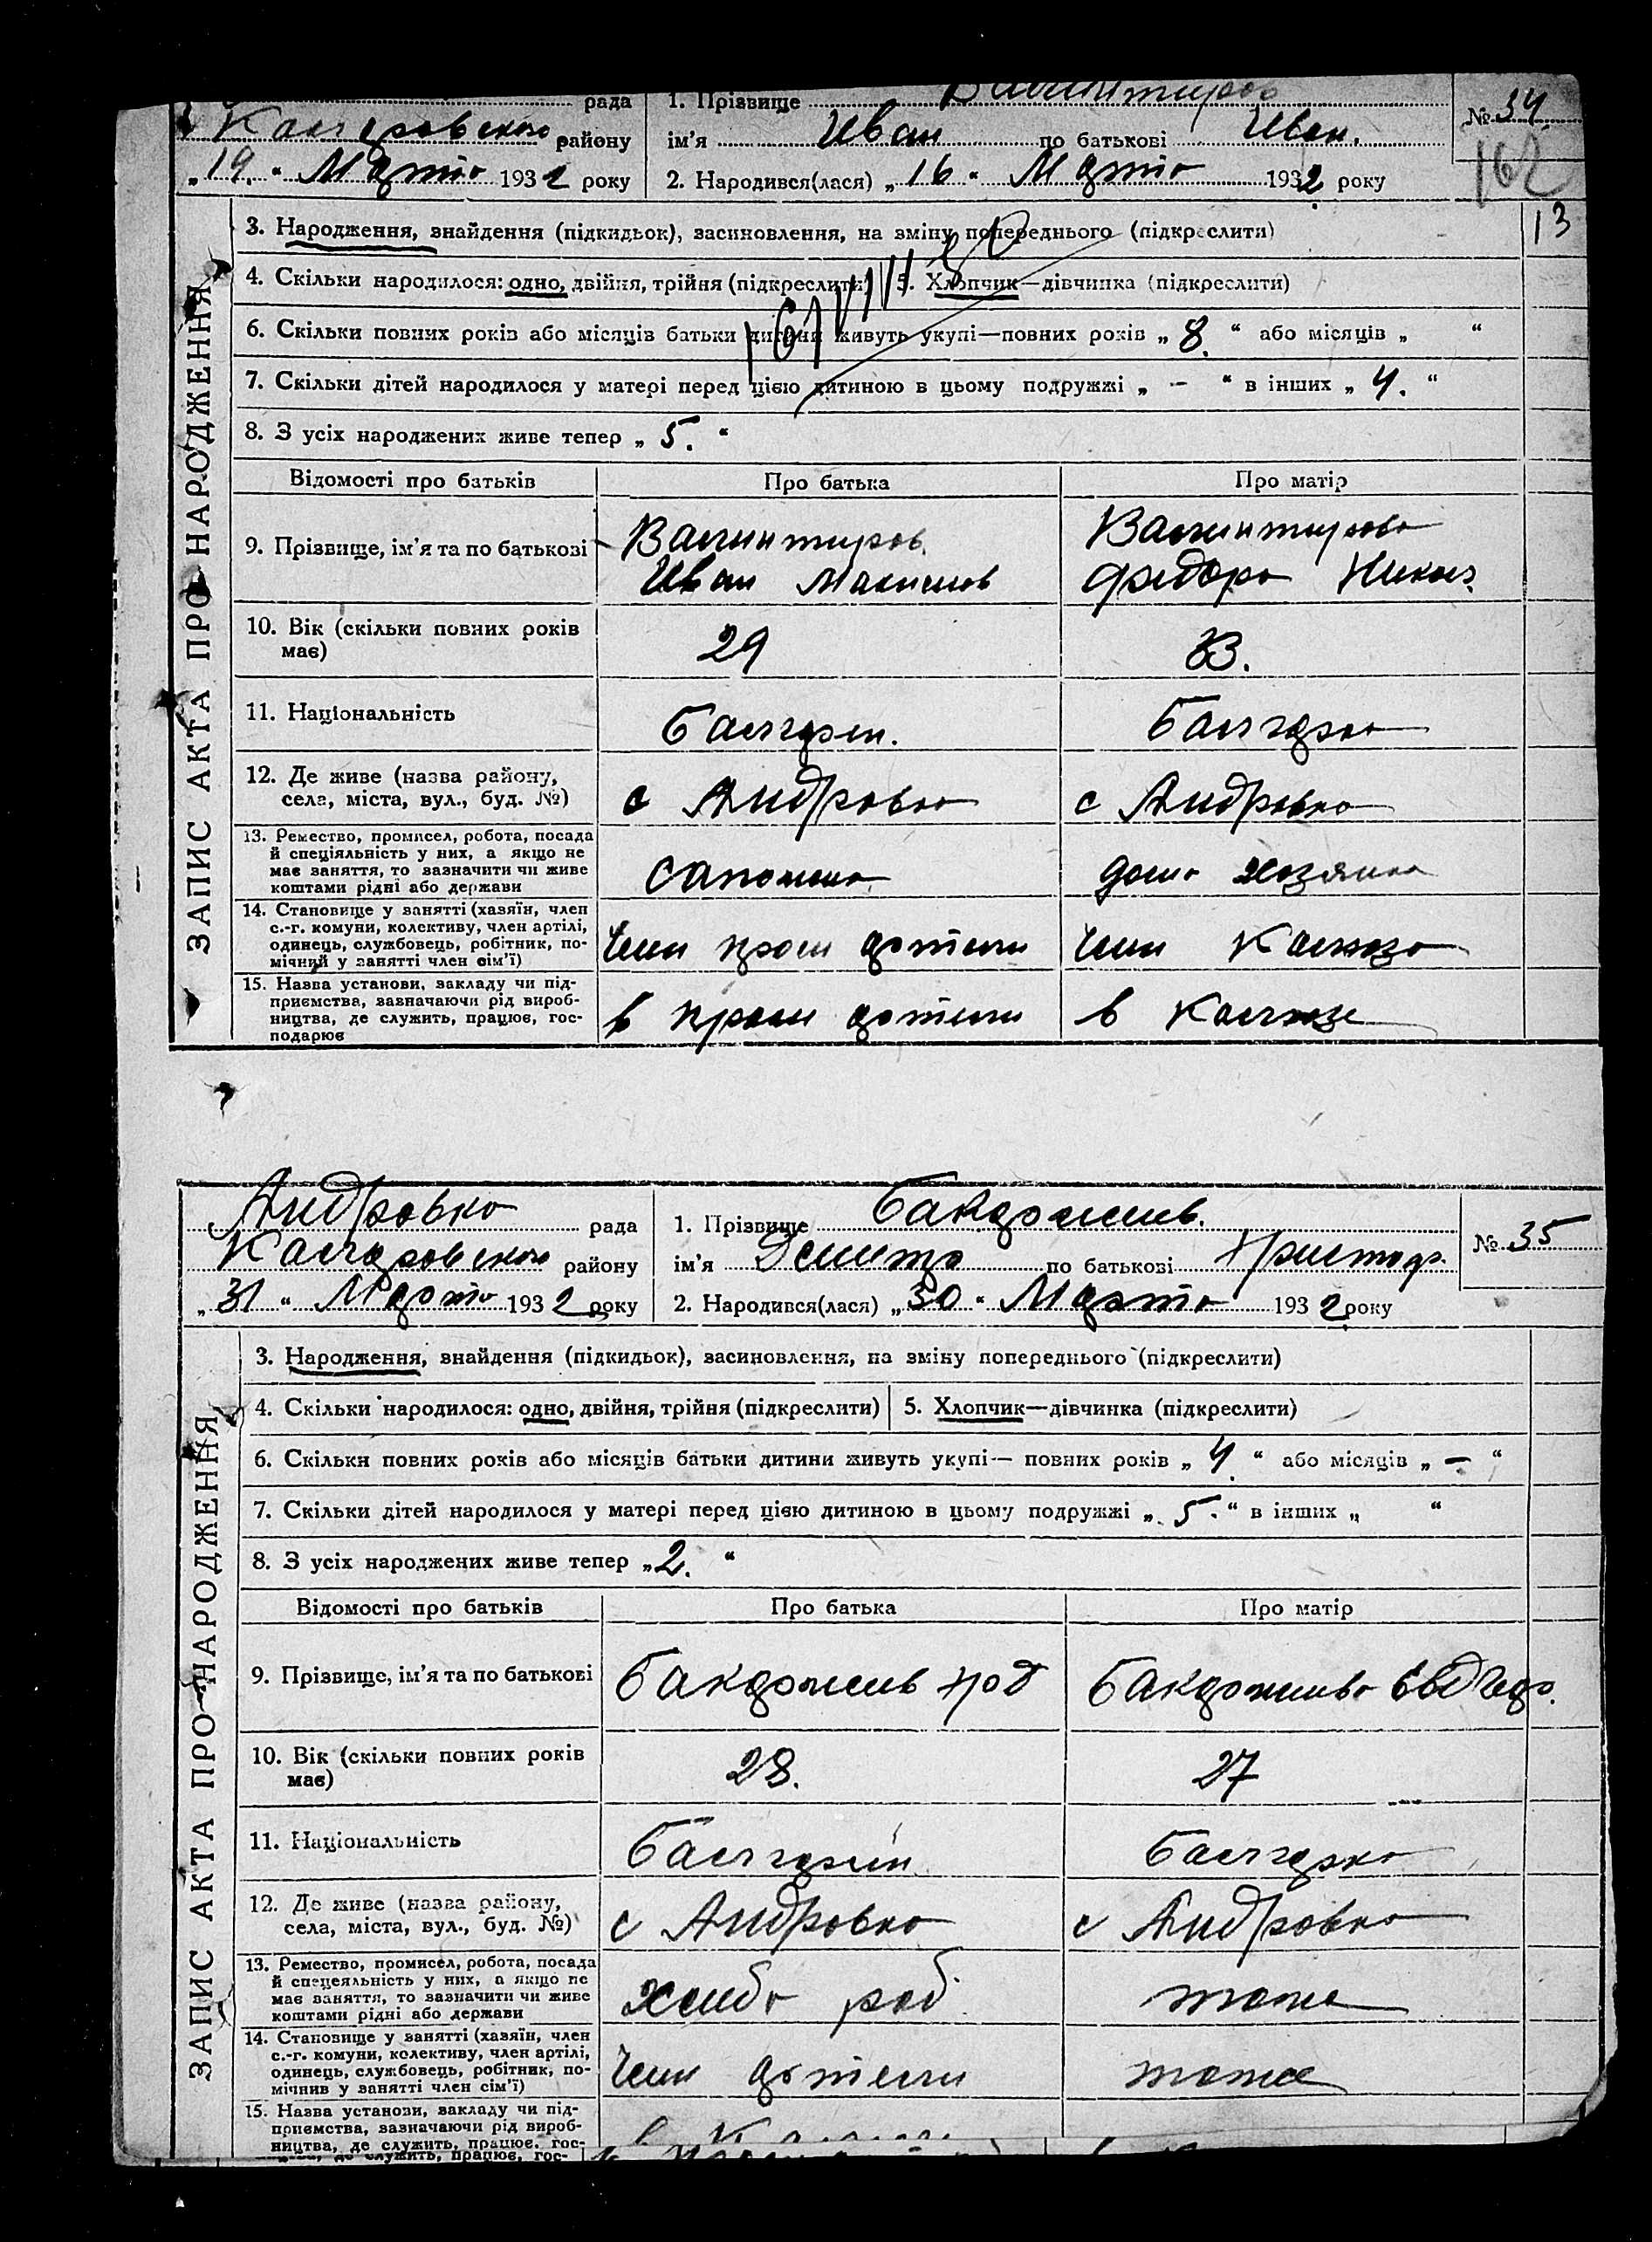 рада
1. Прізвище
№ 34.
району
ім'я Иван по батькові Иван.
162
„19.“ Марта 1932 року
2. Народився(лася) „16“ Марта 1932 року
13
ЗАПИС АКТА ПРО НАРОДЖЕННЯ
3. Народження, знайдення (підкидьок), засиновлення, на зміну попереднього (підкреслити)
4. Скільки народилося: одно, двійня, трійня (підкреслити)
5. Хлопчик—дівчинка (підкреслити)
6. Скільки повних років або місяців батьки дитини живуть укупі—повних років „8.“ або місяців „ “
7. Скільки дітей народилося у матері перед цією дитиною в цьому подружжі „—“ в інших „4.“
8. З усіх народжених живе тепер „5.“
Відомості про батьків
Про батька
Про матір
9. Прізвище, ім'я та по батькові
Иван
Федора Никол.
10. Вік (скільки повних років
має)
29
33.
11. Національність
Балгарин.
Балгарка
12. Де живе (назва району,
села, міста, вул., буд. №)
с Андровка
с Андровка
13. Ремество, промисел, робота, посада
й спеціяльність у них, а якщо не
має заняття, то зазначити чи живе
коштами рідні або держави
дома хозяика
14. Становище у занятті (хазяїн, член
с.-г. комуни, колективу, член артілі,
одинець, службовець, робітник, по-
мічний у занятті член сім'ї)
член пром артели
член Калхоза
15. Назва установи, закладу чи під-
приємства, зазначаючи рід вироб-
ництва, де служить, працює, гос-
подарює
в пром артели
в Калхозе
Андровка рада
1. Прізвище
№ 35
району
ім'я по батькові
„31“ Марта 1932 року
2. Народився(лася) „30“ Марта 1932 року
ЗАПИС АКТА ПРО НАРОДЖЕННЯ
3. Народження, знайдення (підкидьок), засиновлення, на зміну попереднього (підкреслити)
4. Скільки народилося: одно, двійня, трійня (підкреслити)
5. Хлопчик—дівчинка (підкреслити)
6. Скільки повних років або місяців батьки дитини живуть укупі— повних років „4.“ або місяців „—“
7. Скільки дітей народилося у матері перед цією дитиною в цьому подружжі „5.“ в інших „ “
8. З усіх народжених живе тепер „2.“
Відомості про батьків
Про батька
Про матір
9. Прізвище, ім'я та по батькові
10. Вік (скільки повних років
має)
28.
27
11. Національність
Балгарин
Балгарка
12. Де живе (назва району,
села, міста, вул., буд. №)
с Андровка
с Андровка
13. Ремество, промисел, робота, посада
й спецеяльність у них, а якщо не
має заняття, то зазначити чи живе
коштами рідні або держави
хлебо роб.
тоже
14. Становище у занятті (хазяїн, член
с.-г. комуни, колективу, член артілі,
одинець, службовець, робітник, по-
мічнив у занятті член сім'ї)
член артели
тоже
15. Назва установи, закладу чи під-
приємства, зазначаючи рід вироб-
ництва, де служить, працює, гос-
де служить, працює, гос-